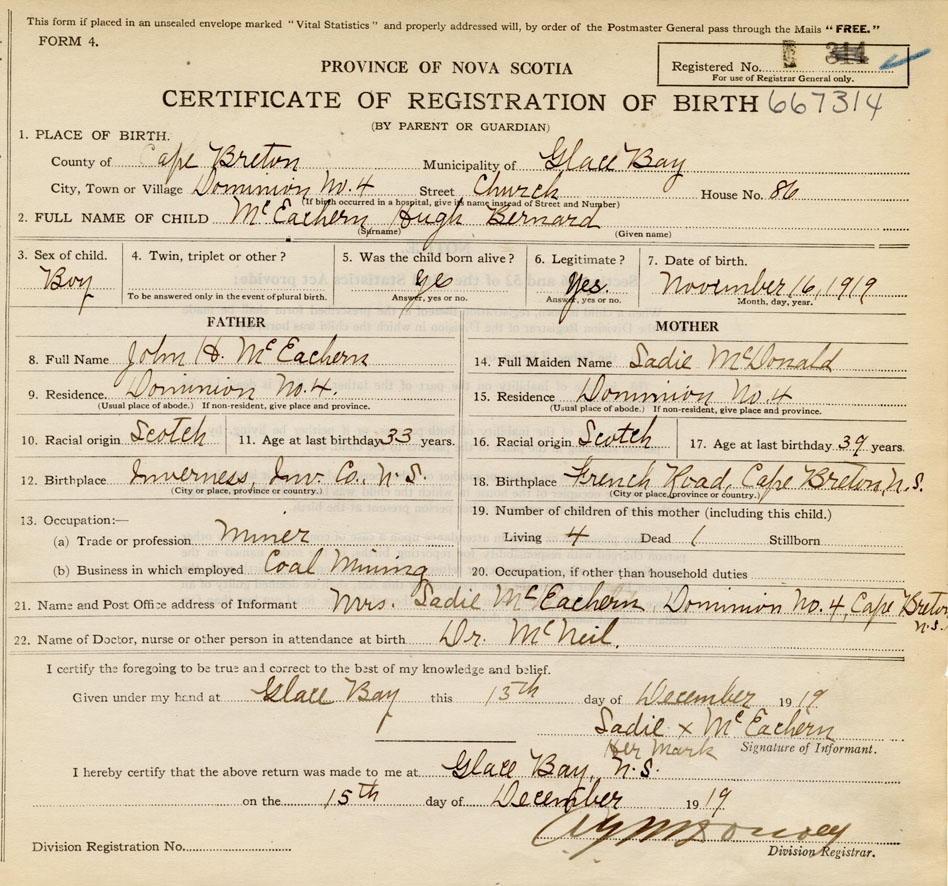 This form if placed in an unsealed envelope marked "Vital Statistics" and properly addressed will, by order of the Postmaster General pass through the Mails "FREE."
FORM 4.
Registered No. 314
For use of Registrar General only.
PROVINCE OF NOVA SCOTIA
CERTIFICATE OF REGISTRATION OF BIRTH 667314
(BY PARENT OR GUARDIAN)
1. PLACE OF BIRTH.
County of Cape Breton Municipality of Glace Bay
City, Town or Village Dominion No. 4 Street Church House No. 86
(If birth occurred in a hospital, give its name instead of Street and Number)
2. FULL NAME OF CHILD McEachern Hugh Bernard
(Surname) (Given name)
3. Sex of child. 4. Twin, triplet or other? 5. Was the child born alive? 6. Legitimate? 7. Date of birth.
Boy Yes Yes. November 16, 1919
To be answered only in the event of plural birth. Answer, yes or no. Answer, yes or no. Month, day, year.
FATHER MOTHER
8. Full Name John H. McEachern 14. Full Maiden Name Sadie McDonald
9. Residence. Dominion No. 4. 15. Residence Dominion No. 4
(Usual place of abode.) If non-resident, give place and province. (Usual place of abode.) If non-resident, give place and province.
10. Racial origin Scotch 11. Age at last birthday 33 years. 16. Racial origin Scotch 17. Age at last birthday 39 years.
12. Birthplace Inverness, Inv. Co., N.S. 18. Birthplace French Road, Cape Breton, N.S.
(City or place, province or country.) (City or place, province or country.)
13. Occupation:— 19. Number of children of this mother (including this child.)
(a) Trade or profession Miner Living 4 Dead 1 Stillborn
(b) Business in which employed Coal Mining 20. Occupation, if other than household duties
21. Name and Post Office address of Informant Mrs. Sadie McEachern, Dominion No. 4, Cape Breton N.S.
22. Name of Doctor, nurse or other person in attendance at birth Dr. McNeil.
I certify the foregoing to be true and correct to the best of my knowledge and belief.
Given under my hand at Glace Bay this 13th day of December 1919
Sadie x McEachern
Her Mark Signature of Informant.
I hereby certify that the above return was made to me at Glace Bay, N.S.
on the 15th day of December 1919
Division Registration No. Division Registrar.